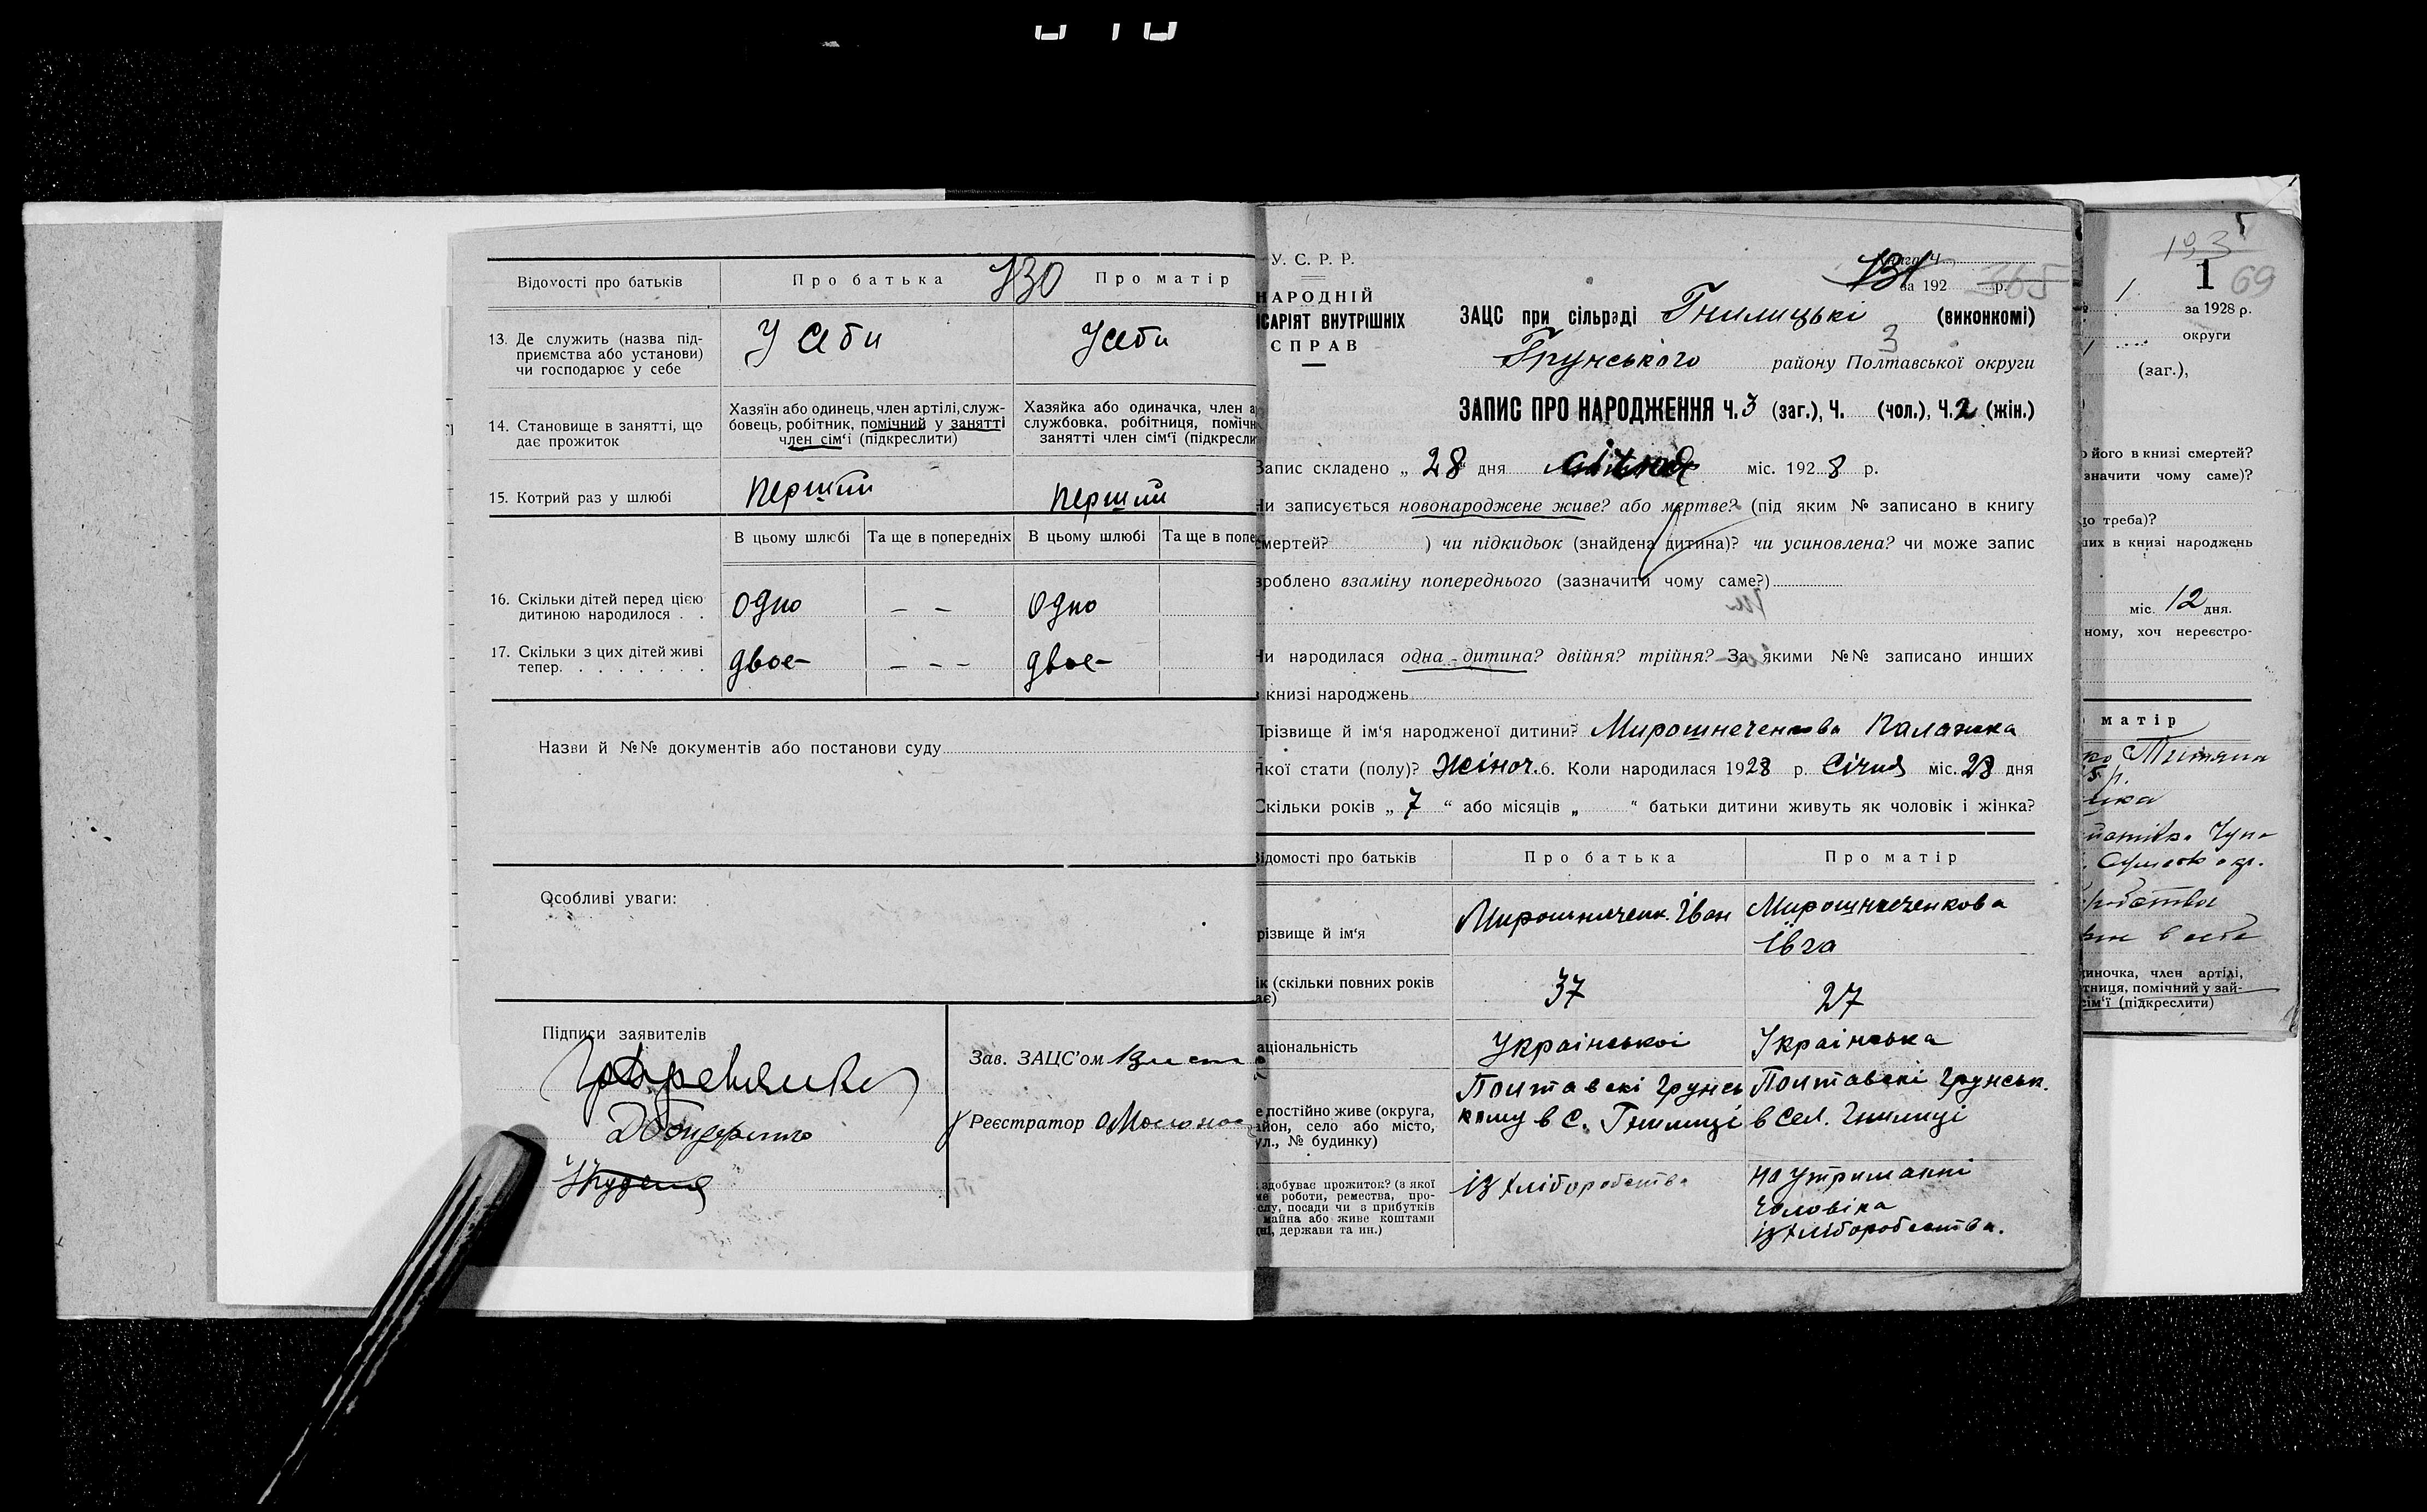 730
Відомості про батьків
Про батька
Про матір
13. Де служить (назва під-
приємства або установи)
чи господарює у себе
У себи
Усеби
14. Становище в занятті, що
дає прожиток
Хазяїн або одинець, член артілі, служ-
бовець, робітник, помічний у занятті
член сім'ї (підкреслити)
Хазяйка або одиначка, член а
службовка, робітниця, помічн
занятті член сім'ї (підкресли
15. Котрий раз у шлюбі
перший
перший
В цьому шлюбі
Та ще в попередніх
В цьому шлюбі
Та ще в попе
16. Скільки дітей перед цією
дитиною народилося . .
одно
— —
одно
17. Скільки з цих дітей живі
тепер. . . . . . . .
двое
— — —
двое
Назви й №№ документів або постанови суду
Особливі уваги:
Підписи заявителів
Зав. ЗАЦС'ом
Реєстратор
У. С. Р. Р.
НАРОДНІЙ
ІСАРІЯТ ВНУТРІШНІХ
СПРАВ
Книга Ч.
731
за 192 р.
365
ЗАЦС при сільраді Гнилицькі (виконкомі)
3
Грунського району Полтавської округи
ЗАПИС ПРО НАРОДЖЕННЯ Ч. 3 (заг.), Ч. (чол.), Ч. 2 (жін.)
Запис складено „ 28 дня січня міс. 192 8 р.
Чи записується новонароджене живе? або мертве? (під яким № записано в книгу
смертей? ) чи підкидьок (знайдена дитина)? чи усиновлена? чи може запис
зроблено взаміну попереднього (зазначити чому саме?)
Чи народилася одна дитина? двійня? трійня? За якими №№ записано инших
в книзі народжень
Прізвище й ім'я народженої дитини? Мирошнеченкова Палажка
Якої стати (полу)? Жіноч. 6. Коли народилася 1928 р. Січня міс. 28 дня
Скільки років „ 7 “ або місяців „ “ батьки дитини живуть як чоловік і жінка?
Відомості про батьків
Про батька
Про матір
різвище й ім'я
Мирошниченк. Іван
Мирошнеченкова
Івга
ік (скільки повних років
ає)
37
27
аціональність
Українськоі
Українська
е постійно живе (округа,
айон, село або місто,
ул., № будинку)
Полтавскі Грунсь
кому в С. Гнилиці
Полтавскі Грунськ.
в Сел. Гнилиці
здобуває прожиток? (з якої
ме роботи, ремества, про-
слу, посади чи з прибутків
майна або живе коштами
ні, держави та ин.)
із хліборобства
на утриманні
чоловіка
із хліборобства.
193
1
69
1
за 1928 р.
округи
(заг.),
о його в книзі смертей?
значити чому саме)?
до треба)?
их в книзі народжень
міс. 12 дня.
ному, хоч нереєстро-
матір
Титяна
р.
Сумськ окр.
диночка, член артілі,
тниця, помічний у зай-
сім'ї (підкреслити)